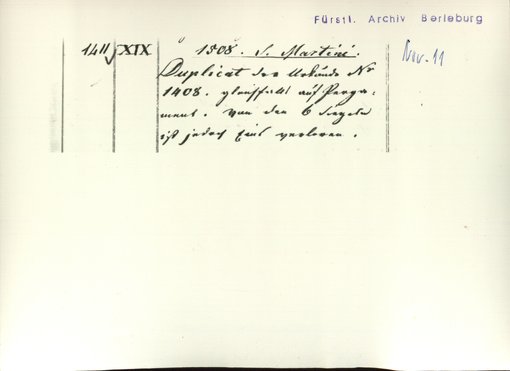 Fürstl. Archiv Berleburg
1411 XIX 1508. S. Martini. Nov. 11
Duplicat der Urkunde Nr
1408. gleichfalls auf Perga-
ment. Von den 6 Siegeln
ist jedoch Eins verloren.